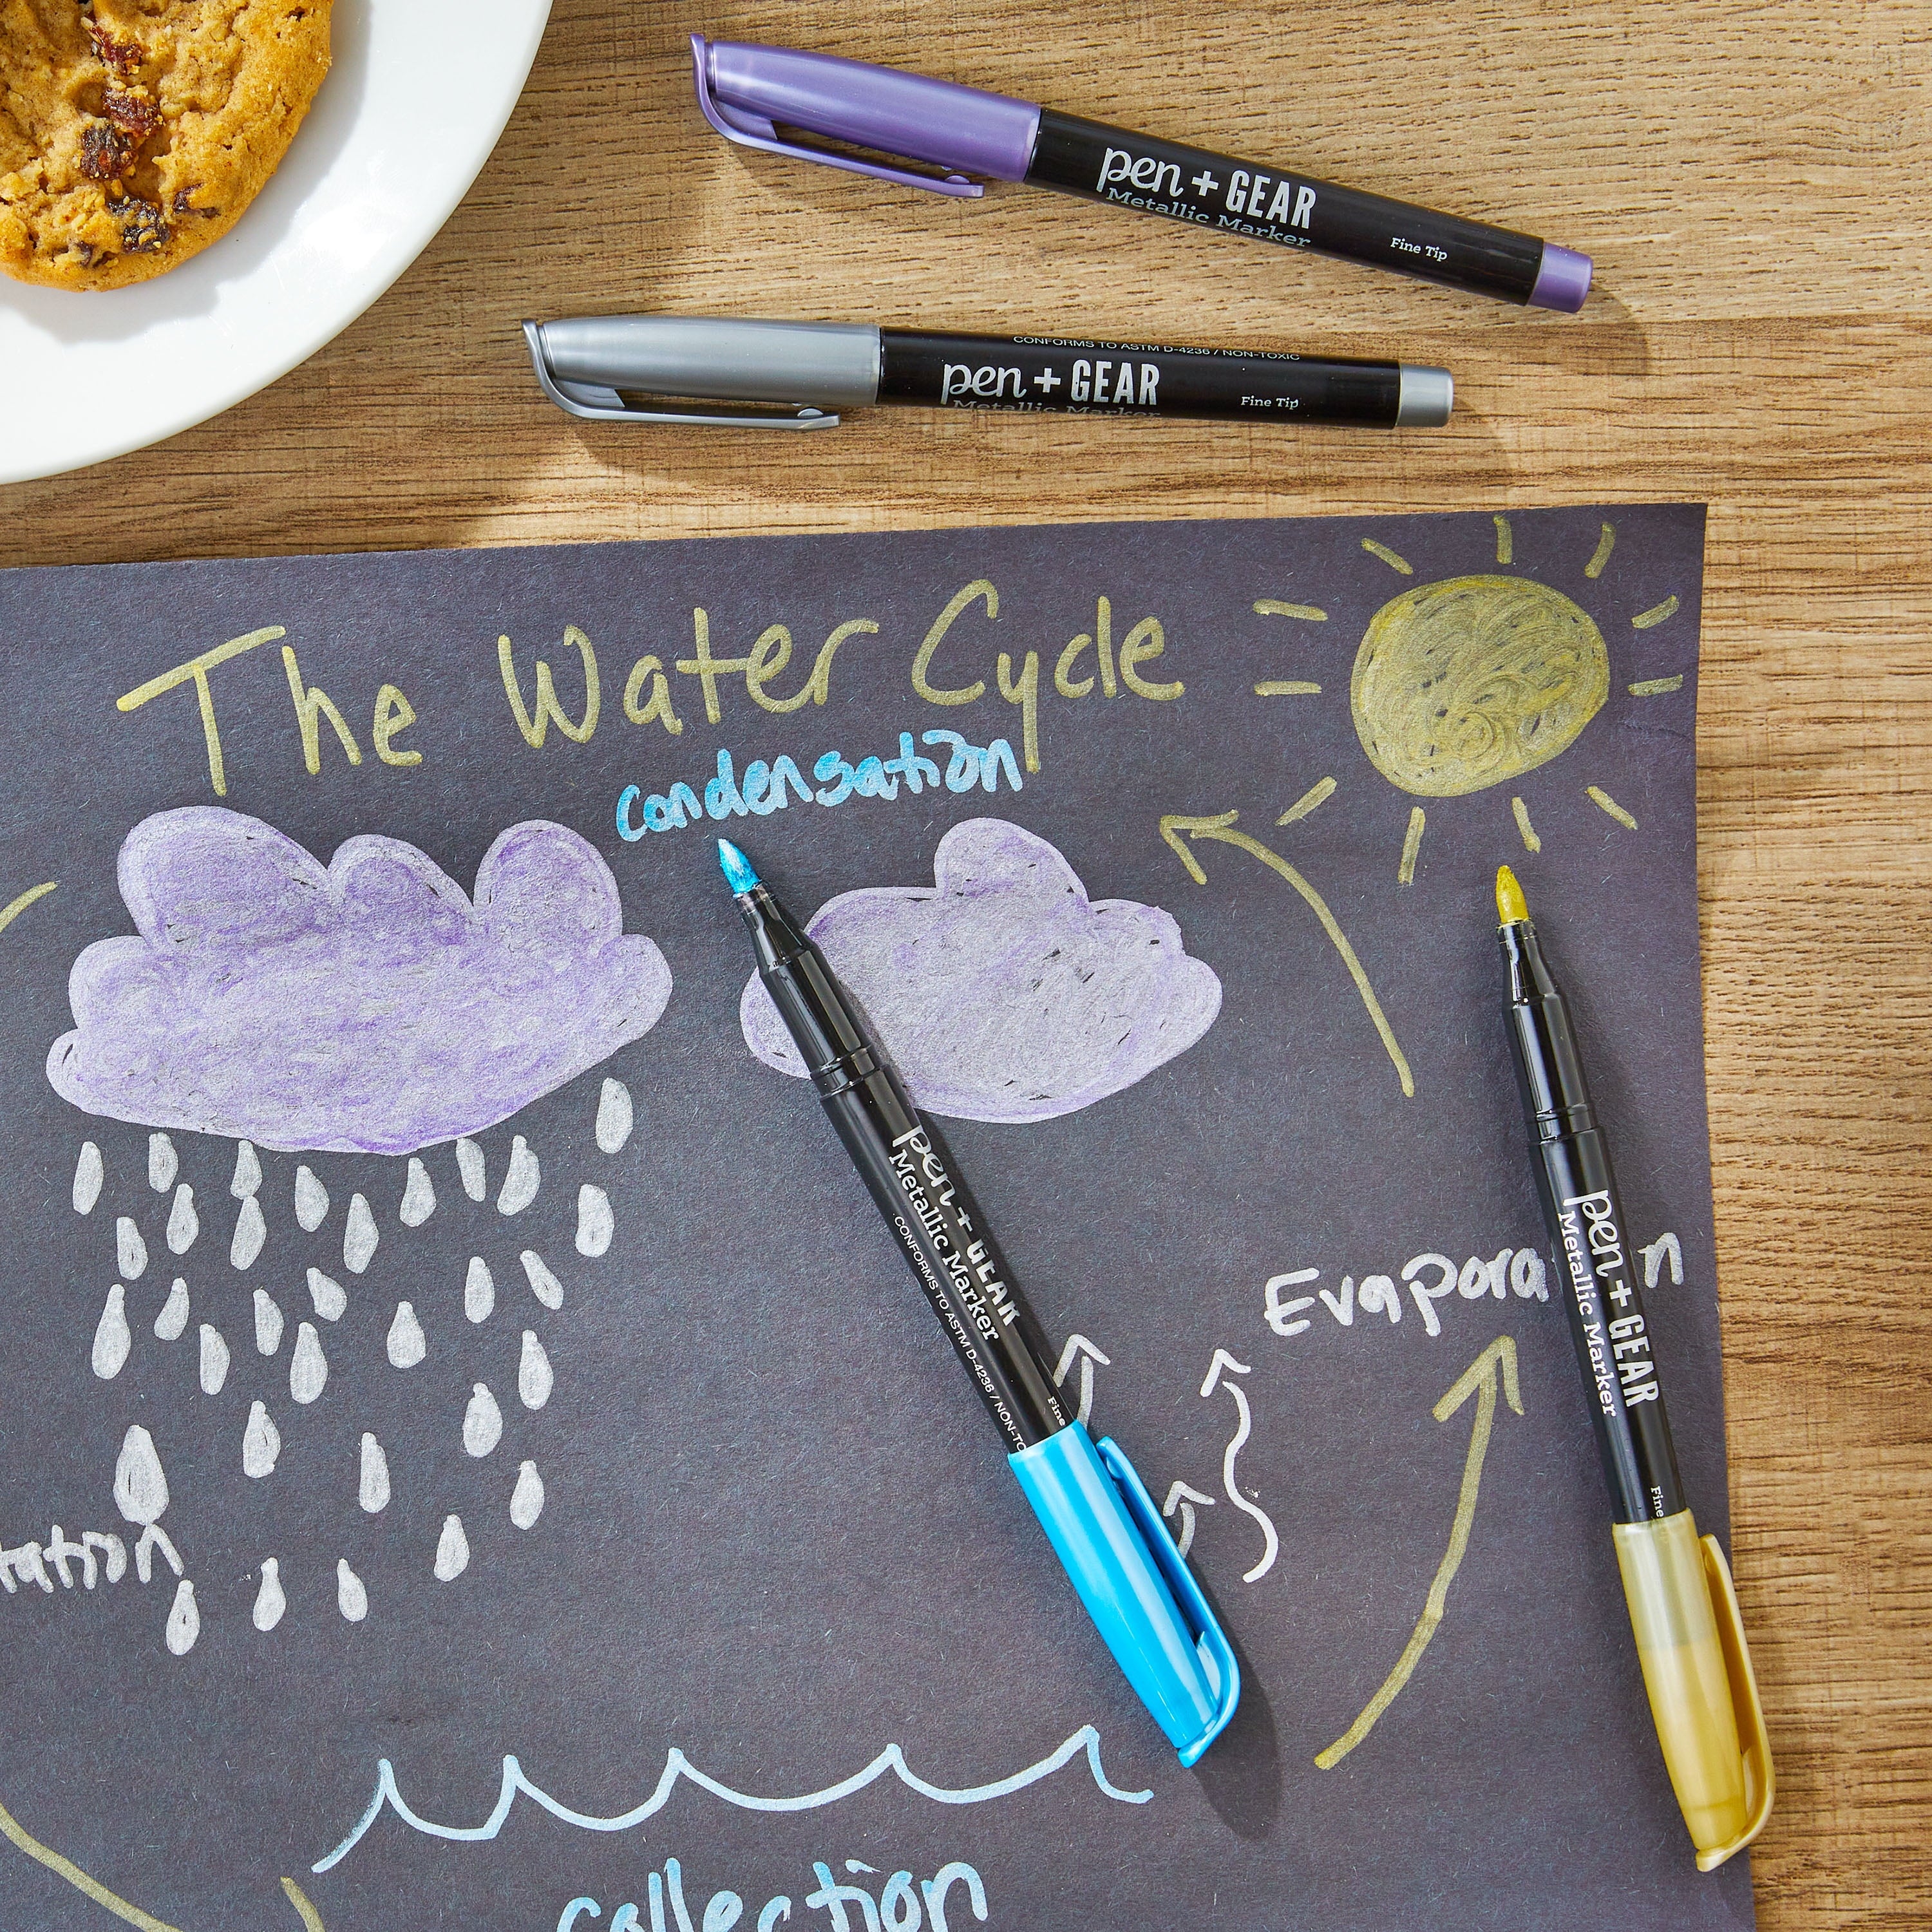 pen + GEAR
Metallic Marker
Fine Tip
CONFORMS TO ASTM D-4236 / NON-TOXIC
pen + GEAR
Metallic Marker
Fine Tip
The Water Cycle
condensation
pen + GEAR
Metallic Marker
CONFORMS TO ASTM D-4236 / NON-TO
Fine
Evapora n
pen + GEAR
Metallic Marker
Fine
tation
collection